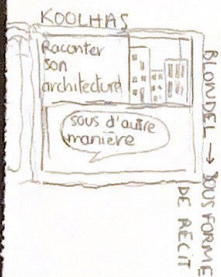 KOOLHAS
Raconter
son
architecture
sous d'autre
manière
BLONDEL → SOUS FORME
DE RÉCIT